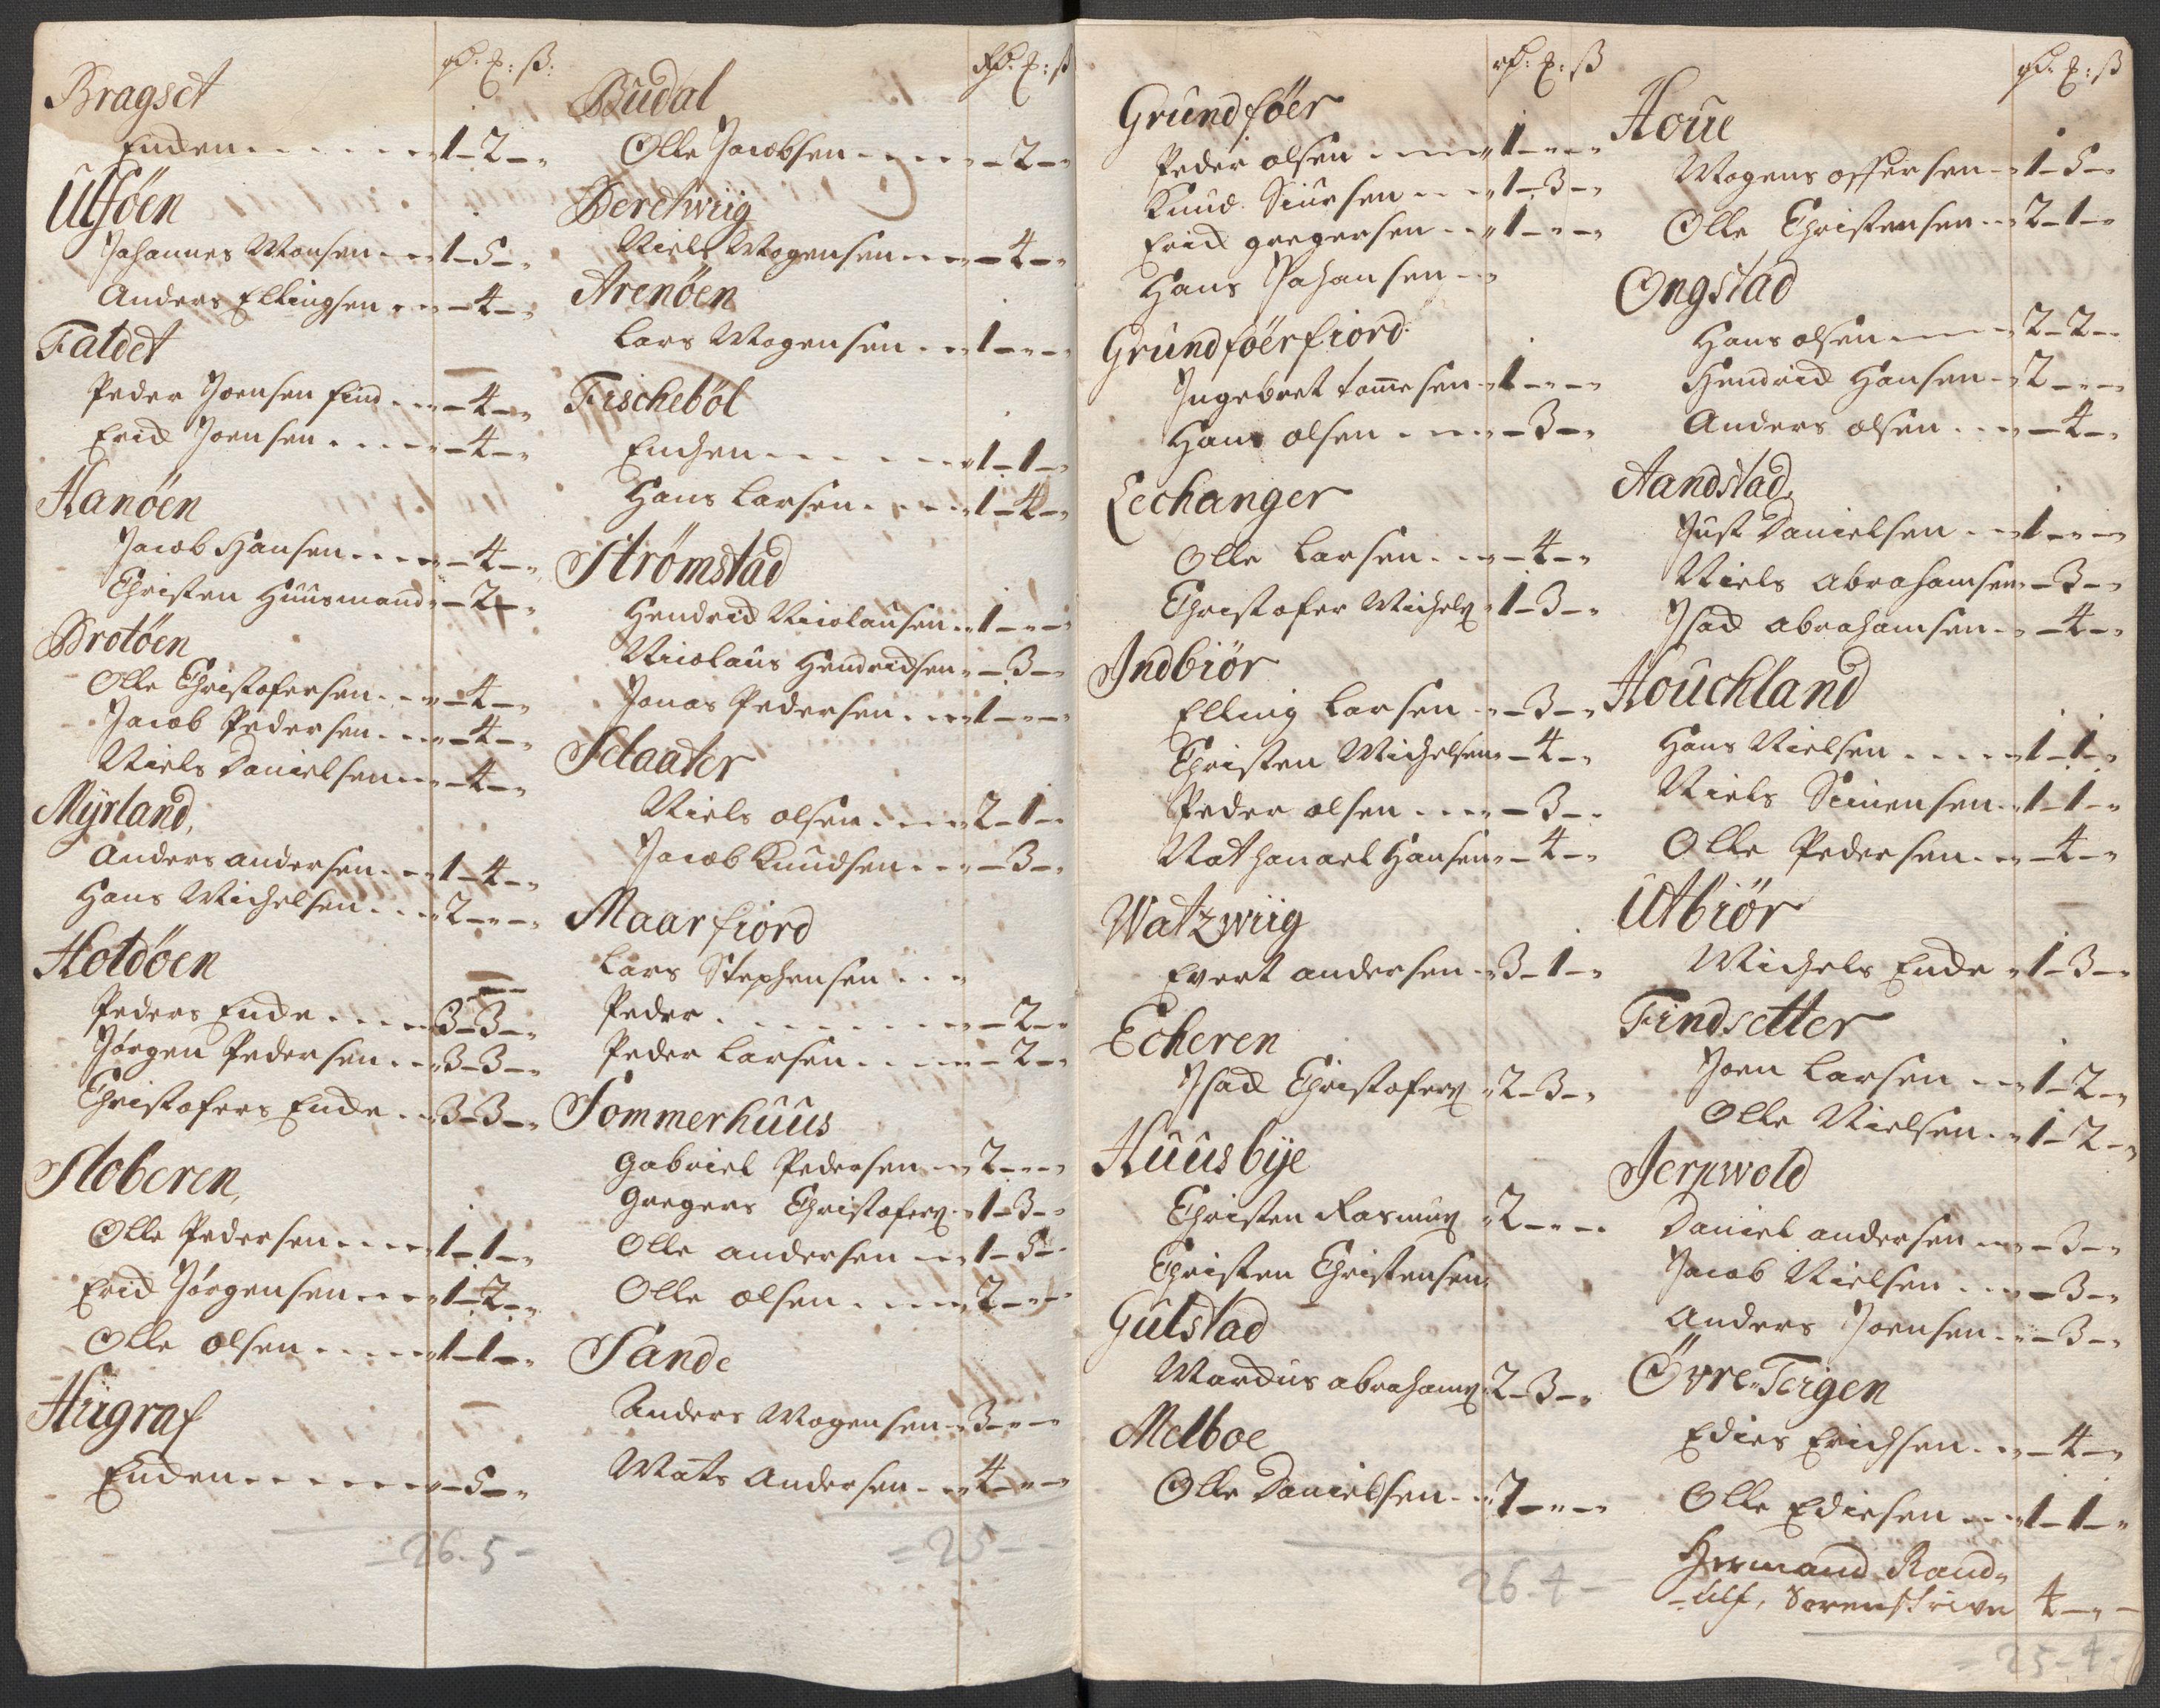 rd. ℥: ß:
Bragset
Enchen . . . . . . 1-2-"
Ulföen
Johannes Monsen . . 1-5-"
Anders Ellingsen . . "-4-"
Faldet
Peder Joensen find . . "-4-"
Erich Joensen . . . . "-4-"
Hanöen
Jacob Hansen . . . . "-4-"
Christen Huusmand "-2-"
Brotöen
Olle Christofersen . . "-4-"
Jacob Pedersen . . . "-4-"
Niels Danielsen . . "-4-"
Myrland,
Anders andersen . . 1-4-"
Hans Michelsen . . . 2-"-"
Holdöen
Peders Enche . . . . 3-3-"
Jörgen Pedersen . . 3-3-"
Christofers Enche . . 3-3-"
Stoberen,
Olle Pedersen . . . . 1-1-"
Erich Jörgensen . . . 1-2-"
Olle olsen . . . . . 1-1-"
Hügraf
Enchen . . . . . . "-5-"
-26.5-
Rd. ℥: ß
Budal
Olle Jacobsen . . . . "-2-"
Beretwiig
Niels Mogensen . . . "-4-"
Arenöen
Lars Mogensen . . 1-"-"
Fischeböl
Enchen . . . . . . 1-1-"
Hans Larsen . . . . 1-4-"
Strömstad
Hendrich Nicolausen . . 1-"-"
Nicolaus Hendrichsen "-3-"
Jonas Pedersen . . . 1-"-"
Sclaater
Niels olsen . . . . 2-1-"
Jacob Knudsen . . . "-3-"
Maarfiord
Lars Stephensen . . .
Peder . . . . . . . . "-2-"
Peder Larsen . . . . "-2-"
Sommerhuus
Gabriel Pedersen . . 2-"-"
Gregers Christofers. 1-3-"
Olle andersen . . 1-5-"
Olle olsen . . . . 2-"-"
Sande
Anders Mogensen . . 3-"-"
Mats Andersen . . . 4-"-"
=25--
rd: ℥: ß
Grundföer
Peder olsen . . . . 1-"-"
Knud Siursen . . . 1-3-"
Erich gregersen . . . 1-"-"
Hans Johansen . .
Grundföerfiord:
Ingebret tommesen . 1-"-"
Hans olsen . . . . "-3-"
Lechanger
Olle Larsen . . . "-4-"
Christofer Michels 1-3-"
Indbiör
Elling Larsen . . "-3-"
Christen Michelsen "-4-"
Peder olsen . . . . "-3-"
Nathanael Hansen "-4-"
Watzwiig
Evert andersen . . 3-1-"
Echeren
Isach Christofers 2-3-"
Huusbye
Christen Rasmus 2-"-"
Christen Christensen
Gulstad
Marchus abrahams 2-3-"
Melboe
Olle Danielsen . . 7-"-"
26.4-
rd. ℥: ß
Houe
Mogens offersen . 1-5-"
Olle Christensen . . 2-1-"
Ongstad
Hans olsen . . . . 2-2-"
Hendrich Hansen . . 2-"-"
Anders olsen . . . "-4-"
Aandstad,
Just Danielsen . . 1-"-"
Niels abrahamsen "-3-"
Isach abrahamsen . . "-4-"
Houckland
Hans Nielsen . . . . 1-1-"
Niels Simensen . . 1-1-"
Olle Pedersen . . . "-4-"
Utbiör
Michels Enche 1-3-"
Findsetter
Joen Larsen . . . 1-2-"
Olle Nielsen . . . 1-2-"
Jernwold
Daniel andersen . . "-3-"
Jacob Nielsen . . . "-3-"
Anders Joensen . . . "-3-"
Övre-Teigen
Edies Erichsen . . . "-4-"
Olle Ediesen . . . 1-1-"
Hermand Rand-
-ulf, Sorenskriver 4-"-
=25-4-